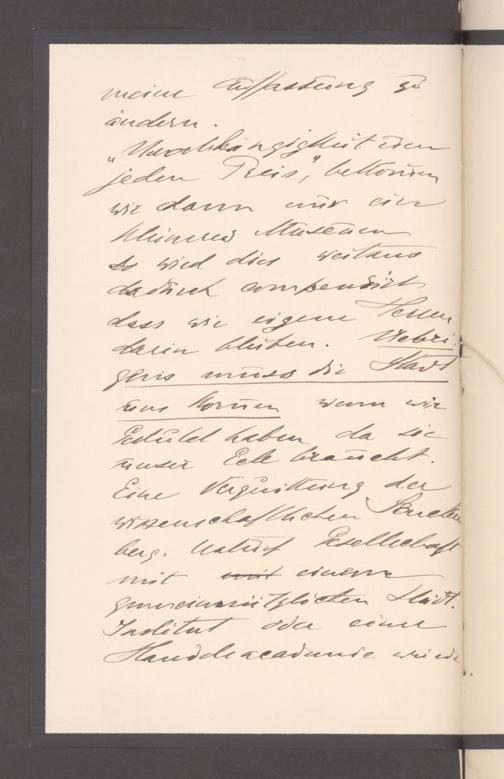 meine Auffassung zu
ändern.
"Unabhängigkeit um
jeden Preis", bekommen
wir dann nur ein
kleineres Museum
so wird dies weitaus
dadurch compensirt
dass wir eigene Herren
darin bleiben. Uebri-
gens muss die Stadt
uns kommen wenn wir
Geduld haben da sie
unser Eck braucht.
Eine Verquickung der
wissenschaftlichen Sencken
berg. Naturf Gesellschaft
mit mit einem
gemeinnützlichen Städt.
Institut oder einer
Handelsacademie würde